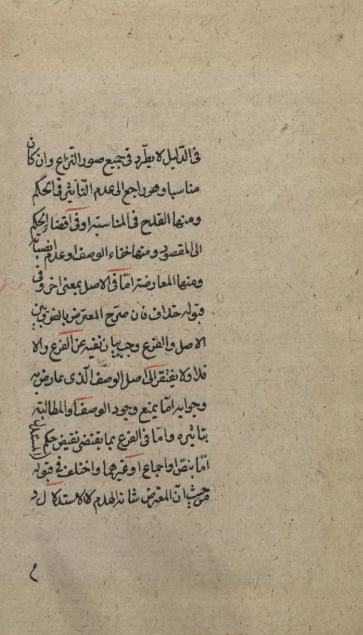 فى الدليل لا يطرد فى جميع صور النزاع وان كان
مناسبا وهو راجع الى عدم التأثير فى الحكم
ومنها القدح فى المناسبة او فى افضاء الحكم
الى المقصود ومنها خفاء الوصف او عدم انضباطه
ومنها المعارضة اما فى الاصل بمعنى اخر وفى
قبوله خلاف فان صرح المعترض بالفرق بين
الاصل والفرع وجب بيان نفيه عن الفرع والا
فلا ولا يفتقر الى اصل الوصف الذى عارض به
وجوابه اما بمنع وجود الوصف او المطالبة
بتاثيره واما فى الفرع بما يقتضى نقيض حكم المستدل
اما بنص او اجماع او غيرهما واختلف فى قبوله
من حيث ان المعترض شانه الهدم لا الاستدلال و